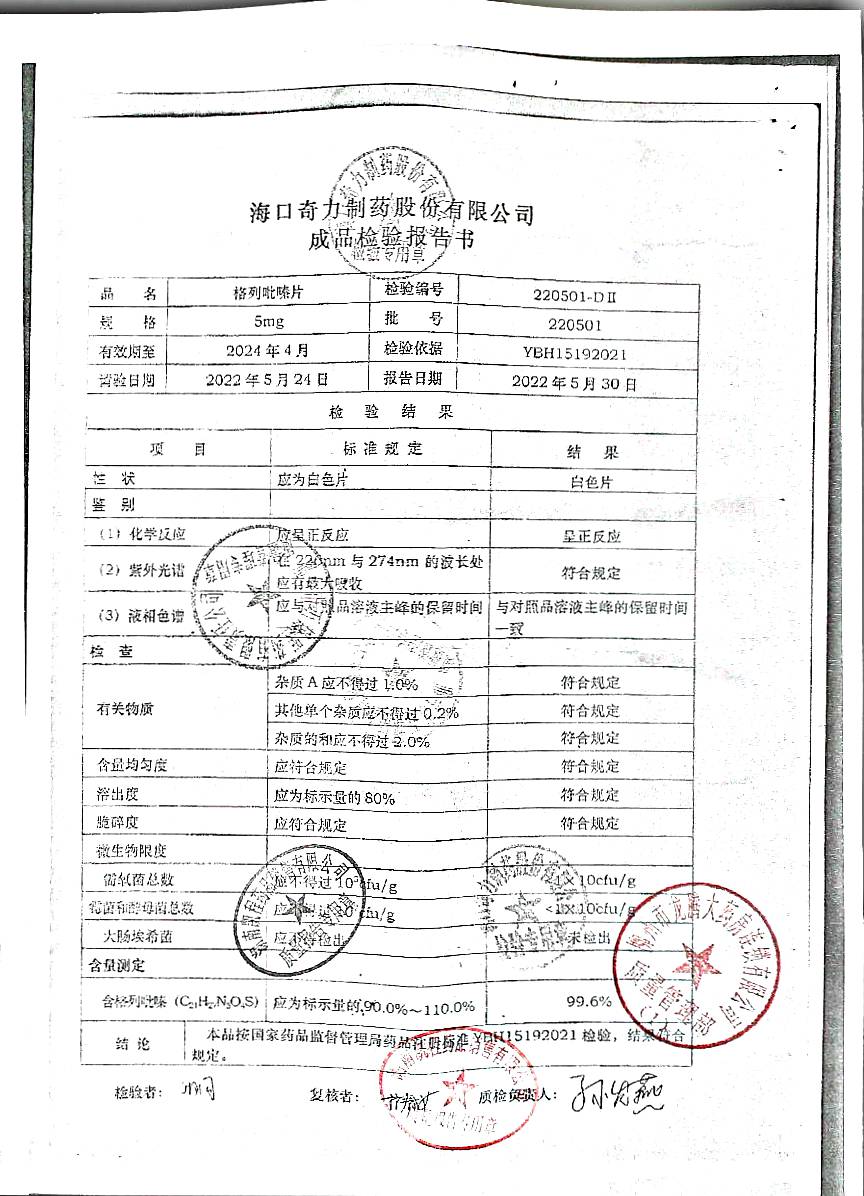 海口奇力制药股份有限公司
成品检验报告书
检验专用章
品 名 格列吡嗪片 检验编号 220501-DⅡ
规 格 5mg 批 号 220501
有效期至 2024年4月 检验依据 YBH15192021
请验日期 2022年5月24日 报告日期 2022年5月30日
检 验 结 果
项 目 标准规定 结 果
性 状 应为白色片 白色片
鉴 别
(1)化学反应 应呈正反应 呈正反应
(2)紫外光谱 在226nm与274nm的波长处 符合规定
应有最大吸收
(3)液相色谱 应与对照品溶液主峰的保留时间 与对照品溶液主峰的保留时间
一致
检 查
有关物质
杂质A应不得过1.0% 符合规定
其他单个杂质应不得过0.2% 符合规定
杂质的和应不得过2.0% 符合规定
含量均匀度 应符合规定 符合规定
溶出度 应为标示量的80% 符合规定
脆碎度 应符合规定 符合规定
微生物限度
需氧菌总数 应不得过10³cfu/g 10cfu/g
霉菌和酵母菌总数 cfu/g <1×10cfu/g
大肠埃希菌 应不得检出 未检出
含量测定
含格列吡嗪 应为标示量的90.0%～110.0% 99.6%
结 论 本品按国家药品监督管理局药品注册标准YBH15192021检验，结果符合
规定。
检验者: 复核者: 质检负责人: 孙
大药房连锁有限公司
质量管理部
(1)